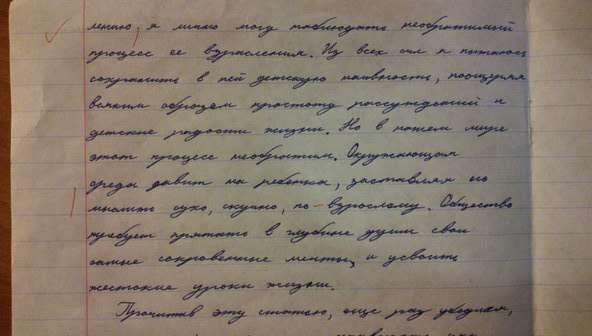 лению, я лишь могу наблюдать необратимый
процесс ее взросления. Из всех сил я пытаюсь
сохранить в ней детскую наивность, поощряя
всяким образом простоту рассуждений и
детские радости жизни. Но в нашем мире
этот процесс необратим. Окружающая
среда давит на ребенка, заставляя его
мыслить сухо, скучно, по-взрослому. Общество
требует прятать в глубине души свои
самые сокровенные мечты, и усвоить
жестокие уроки жизни.
Прочитав эту статью, еще раз убедилась,